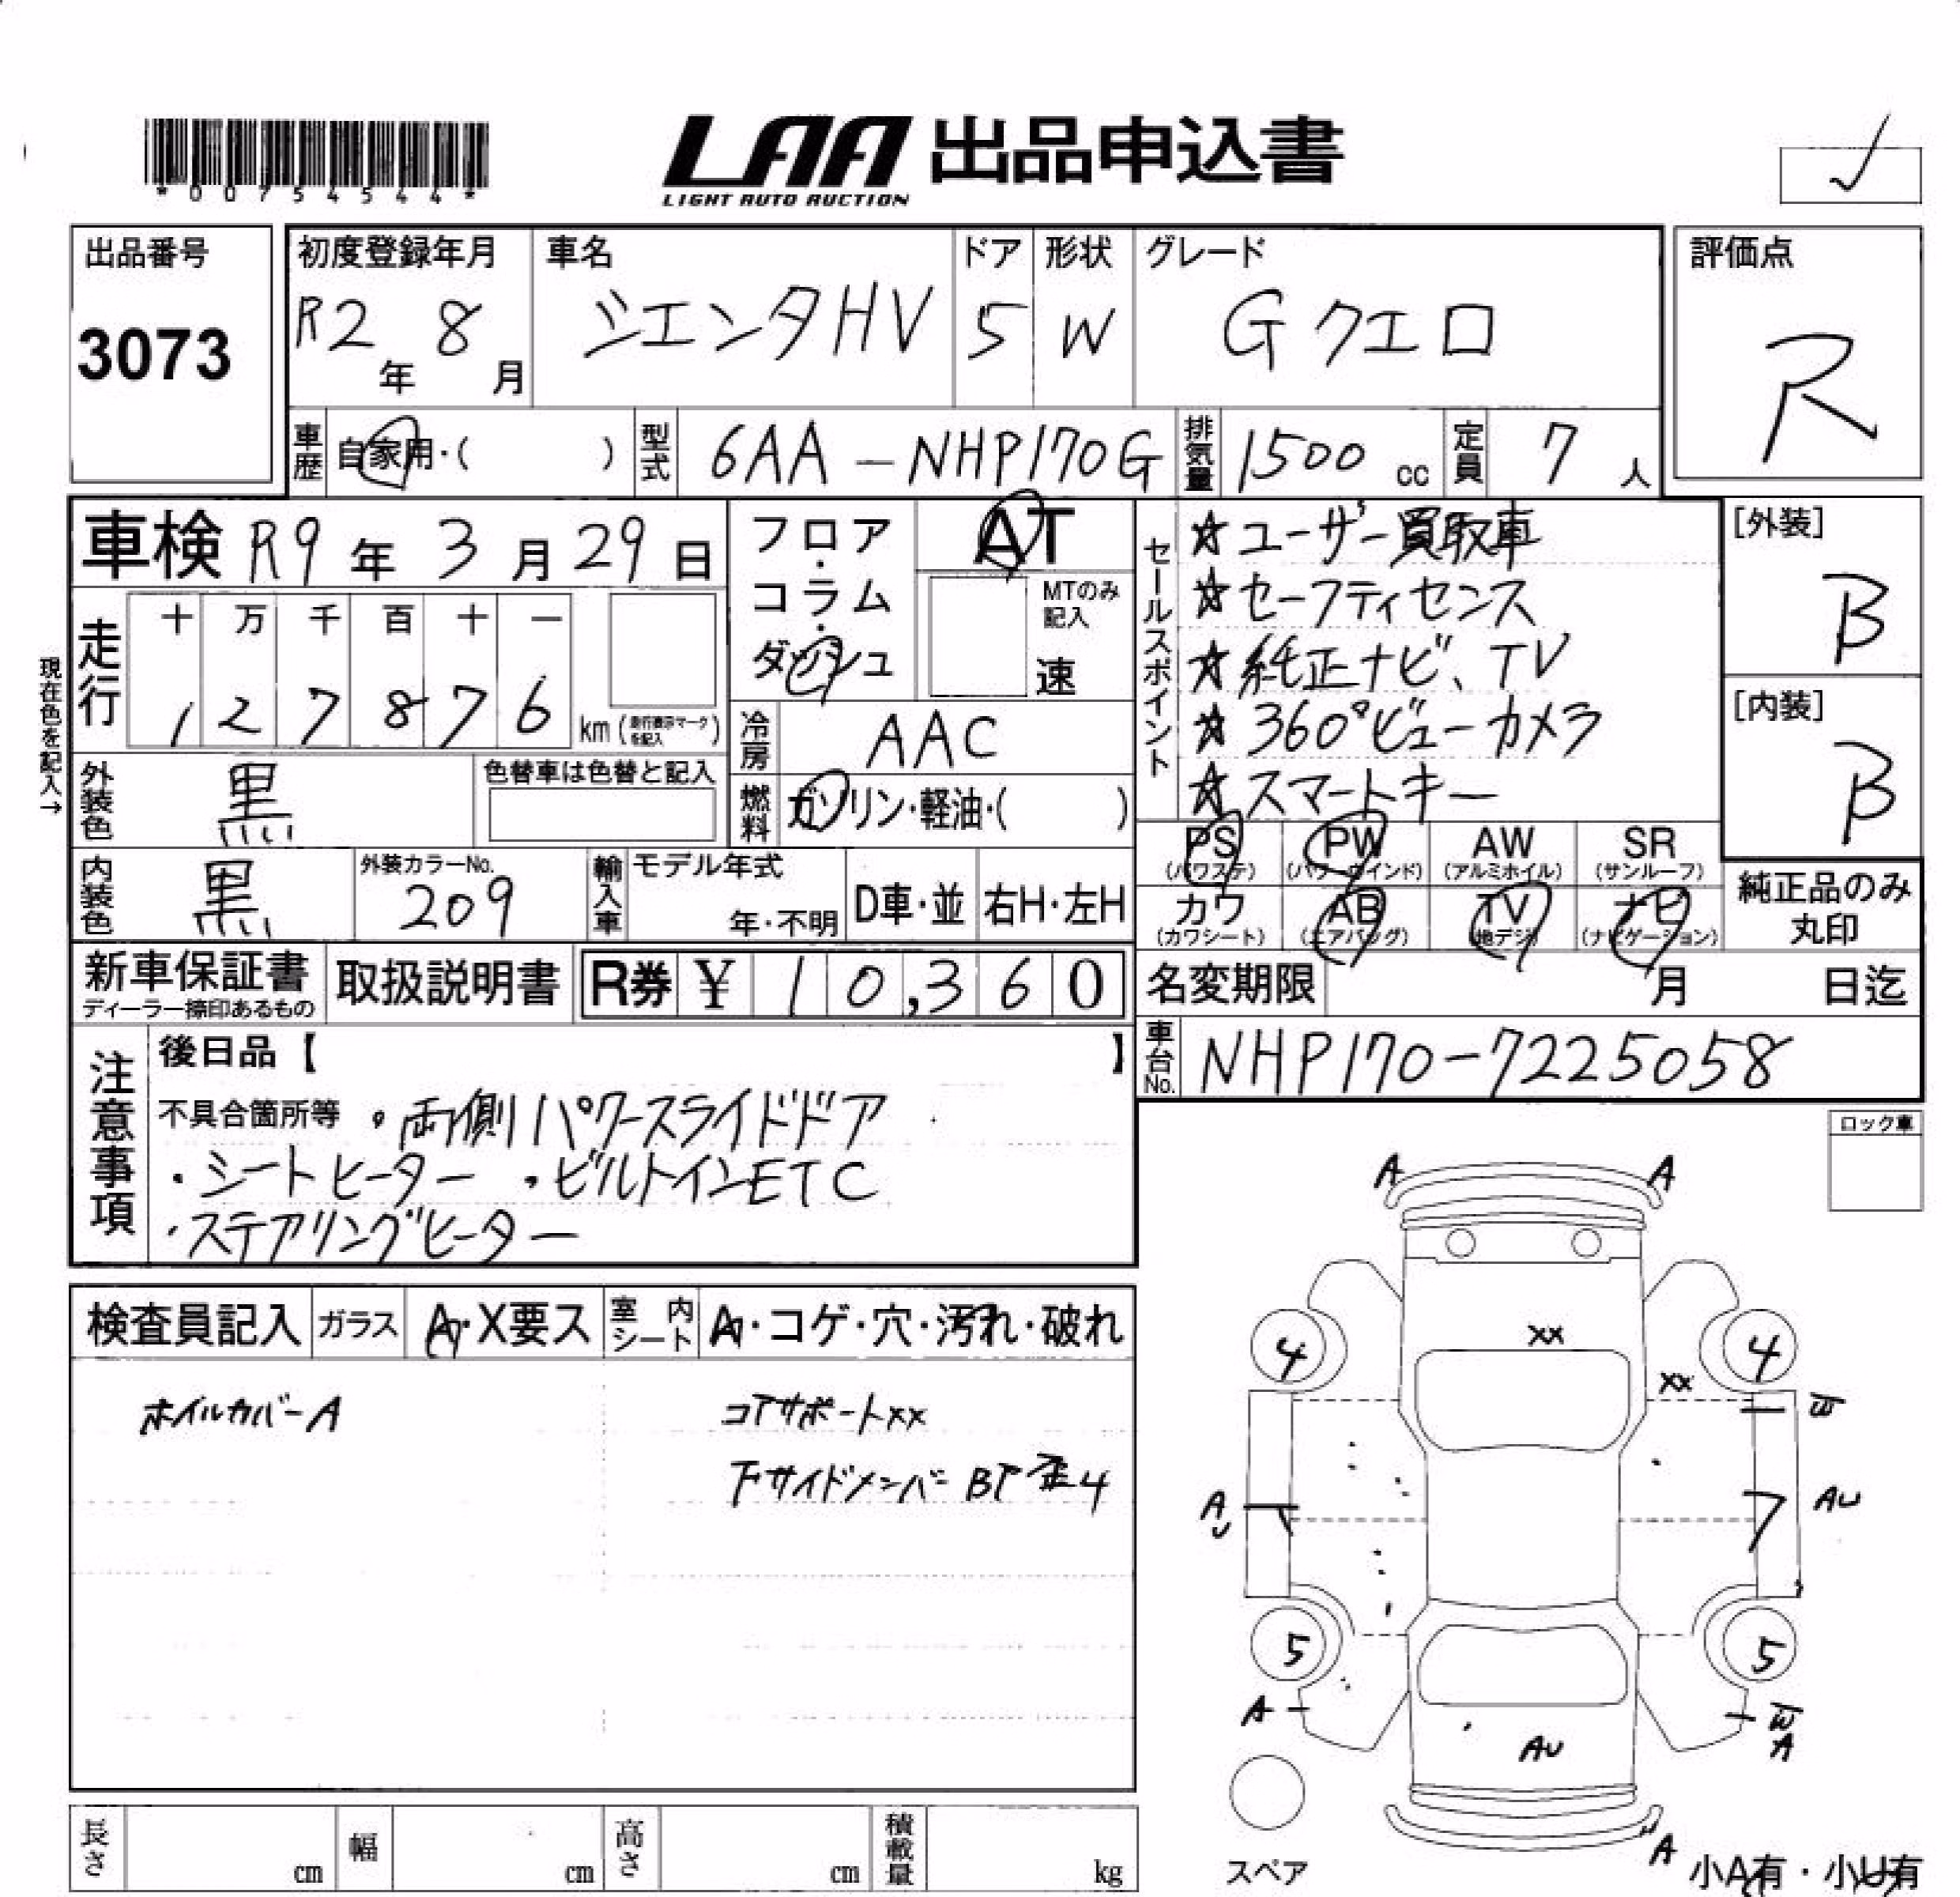 *00754544*
LAA 出品申込書
LIGHT AUTO AUCTION
出品番号
3073
初度登録年月
R2年 8月
車名
シエンタHV
ドア
5
形状
W
グレード
Gクエロ
評価点
R
車歴 自家用・( )
型式 6AA-NHP170G
排気量 1500 cc
定員 7 人
車検 R9年 3月 29日
フロア・コラム・ダッシュ
AT
MTのみ記入
速
セールスポイント
☆ユーザー買取車
☆セーフティセンス
☆純正ナビ、TV
☆360°ビューカメラ
☆スマートキー
[外装]
B
[内装]
B
現在色を記入→
走行
十 万 千 百 十 一
1 2 7 8 7 6 km (走行表示マークを記入)
冷房 AAC
外装色 黒
色替車は色替と記入
燃料 ガソリン・軽油・( )
内装色 黒
外装カラーNo.
209
輸入車
モデル年式
年・不明
D車・並
右H・左H
PS (パワステ)
PW (パワーウインド)
AW (アルミホイル)
SR (サンルーフ)
カワ (カワシート)
AB (エアバッグ)
TV (地デジ)
ナビ (ナビゲーション)
純正品のみ
丸印
新車保証書
ディーラー捺印あるもの
取扱説明書
R券 ¥ 10,360
名変期限 月 日迄
車台No. NHP170-7225058
注意事項
後日品【 】
不具合箇所等 ・両側パワースライドドア
・シートヒーター ・ビルトインETC
・ステアリングヒーター
ロック車
検査員記入
ガラス A・X要ス
室内シート A・コゲ・穴・汚れ・破れ
ホイルカバーA
コアサポートXX
下サイドメンバーBT歪4
A A
XX
4 4
XX
W
AU
AU
5 5
A
W
A
AU
A
スペア
小A有・小U有
長さ cm
幅 cm
高さ cm
積載量 kg